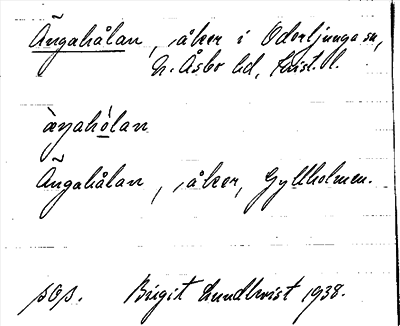 Ängahålan, åker i Oderljunga sn,
N. Åsbo hd, Krist. l.
àŋahò̱lan
Ängahålan, åker, Gyllholmen.
sɷs. Birgit Lundkvist 1938.